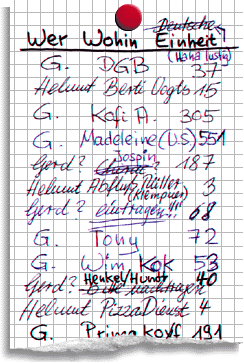 Deutsche
Wer Wohin Einheit
G. DGB (Hand lustig) 37
Helmut Berti Vogts 15
G. Kofi A. 305
G. Madeleine (US) 551
Jospin
Gerd? 187
Helmut Abfluß Müller 3
(Klempner)
Gerd? eintragen!!! 68
G. Tony 72
G. Wim Kok 53
Henkel/Hundt 40
Gerd? Bitte nachtragen
Helmut PizzaDienst 4
G. Primakoff 191